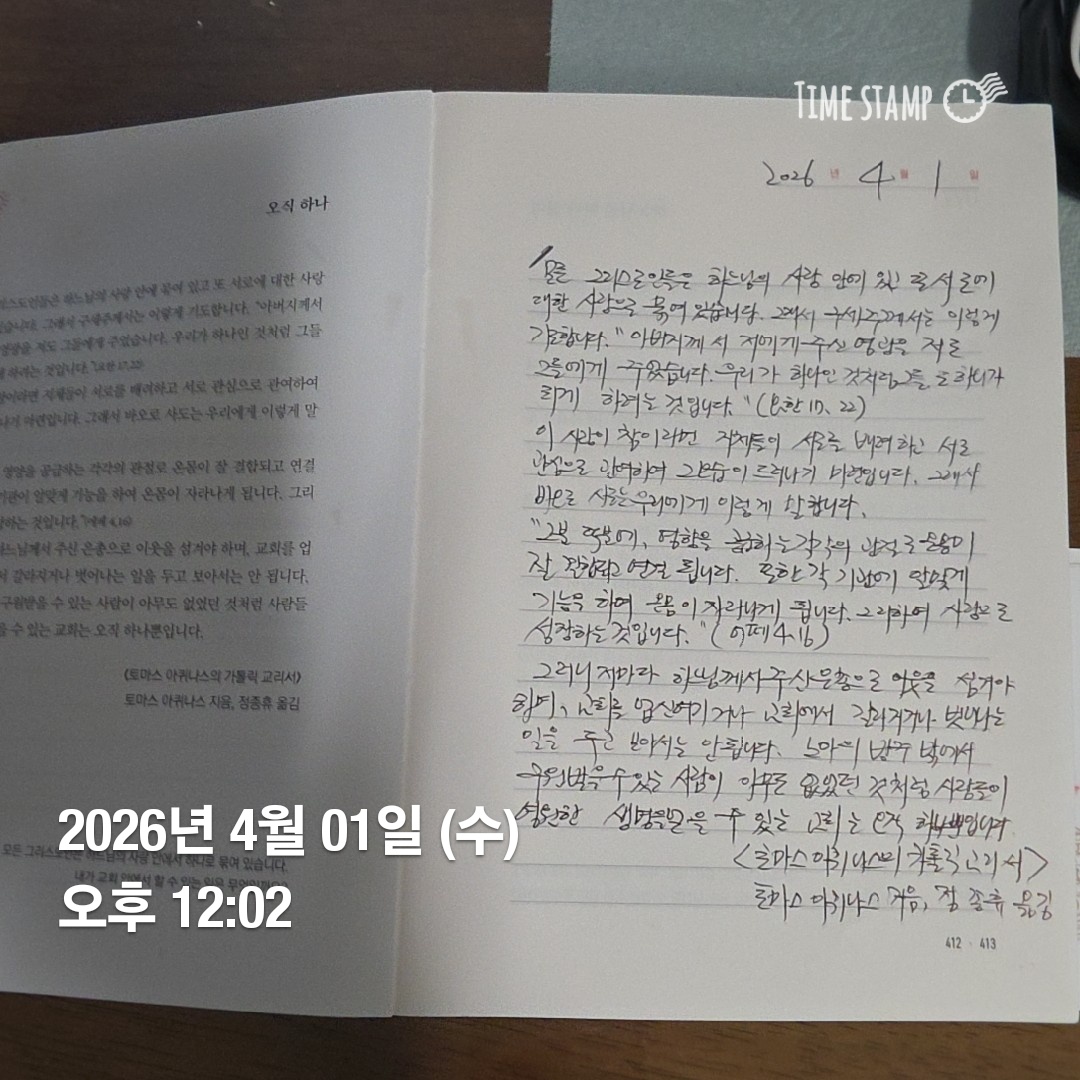 TIME STAMP
오직 하나
스도인들은 하느님의 사랑 안에 묶여 있고 또 서로에 대한 사랑
습니다. 그래서 구세주께서는 이렇게 기도합니다. "아버지께서
영광을 저도 그들에게 주었습니다. 우리가 하나인 것처럼 그들
하려는 것입니다."(요한 17,22)
이라면 지체들이 서로를 배려하고 서로 관심으로 관여하여
나기 마련입니다. 그래서 바오로 사도는 우리에게 이렇게 말
영양을 공급하는 각각의 관절로 온몸이 잘 결합되고 연결
기관이 알맞게 기능을 하여 온몸이 자라나게 됩니다. 그리
하는 것입니다."(에페 4,16)
느님께서 주신 은총으로 이웃을 섬겨야 하며, 교회를 업
서 갈라지거나 벗어나는 일을 두고 보아서는 안 됩니다.
구원받을 수 있는 사람이 아무도 없었던 것처럼 사람들
을 수 있는 교회는 오직 하나뿐입니다.
《토마스 아퀴나스의 가톨릭 교리서》
토마스 아퀴나스 지음, 정종휴 옮김
모든 그리스도인은 하느님의 사랑 안에서 하나로 묶여 있습니다.
내가 교회 안에서 할 수 있는 일은 무엇일까요?
2026년 4월 1일
모든 그리스도인들은 하느님의 사랑 안에 있고 또 서로에
대한 사랑으로 묶여 있습니다. 그래서 구세주께서는 이렇게
기도합니다. "아버지께서 저에게 주신 영광을 저도
그들에게 주었습니다. 우리가 하나인 것처럼 그들도 하나가
되게 하려는 것입니다." (요한 17, 22)
이 사랑이 참이라면 지체들이 서로를 배려하고 서로
관심으로 관여하여 그 모습이 드러나기 마련입니다. 그래서
바오로 사도는 우리에게 이렇게 말합니다.
"그분 덕분에, 영양을 공급하는 각각의 관절로 온몸이
잘 결합되고 연결됩니다. 또한 각 기관이 알맞게
기능을 하여 온몸이 자라나게 됩니다. 그리하여 사랑으로
성장하는 것입니다." (에페 4.16)
그러니 저마다 하느님께서 주신 은총으로 이웃을 섬겨야
하며, 교회를 업신여기거나 교회에서 갈라지거나 벗어나는
일을 두고 보아서는 안됩니다. 노아의 방주 밖에서
구원받을 수 있는 사람이 아무도 없었던 것처럼 사람들이
영원한 생명을 받을 수 있는 교회는 오직 하나뿐입니다.
<토마스 아퀴나스의 가톨릭 교리서>
토마스 아퀴나스 지음, 정종휴 옮김
412 · 413
2026년 4월 01일 (수)
오후 12:02